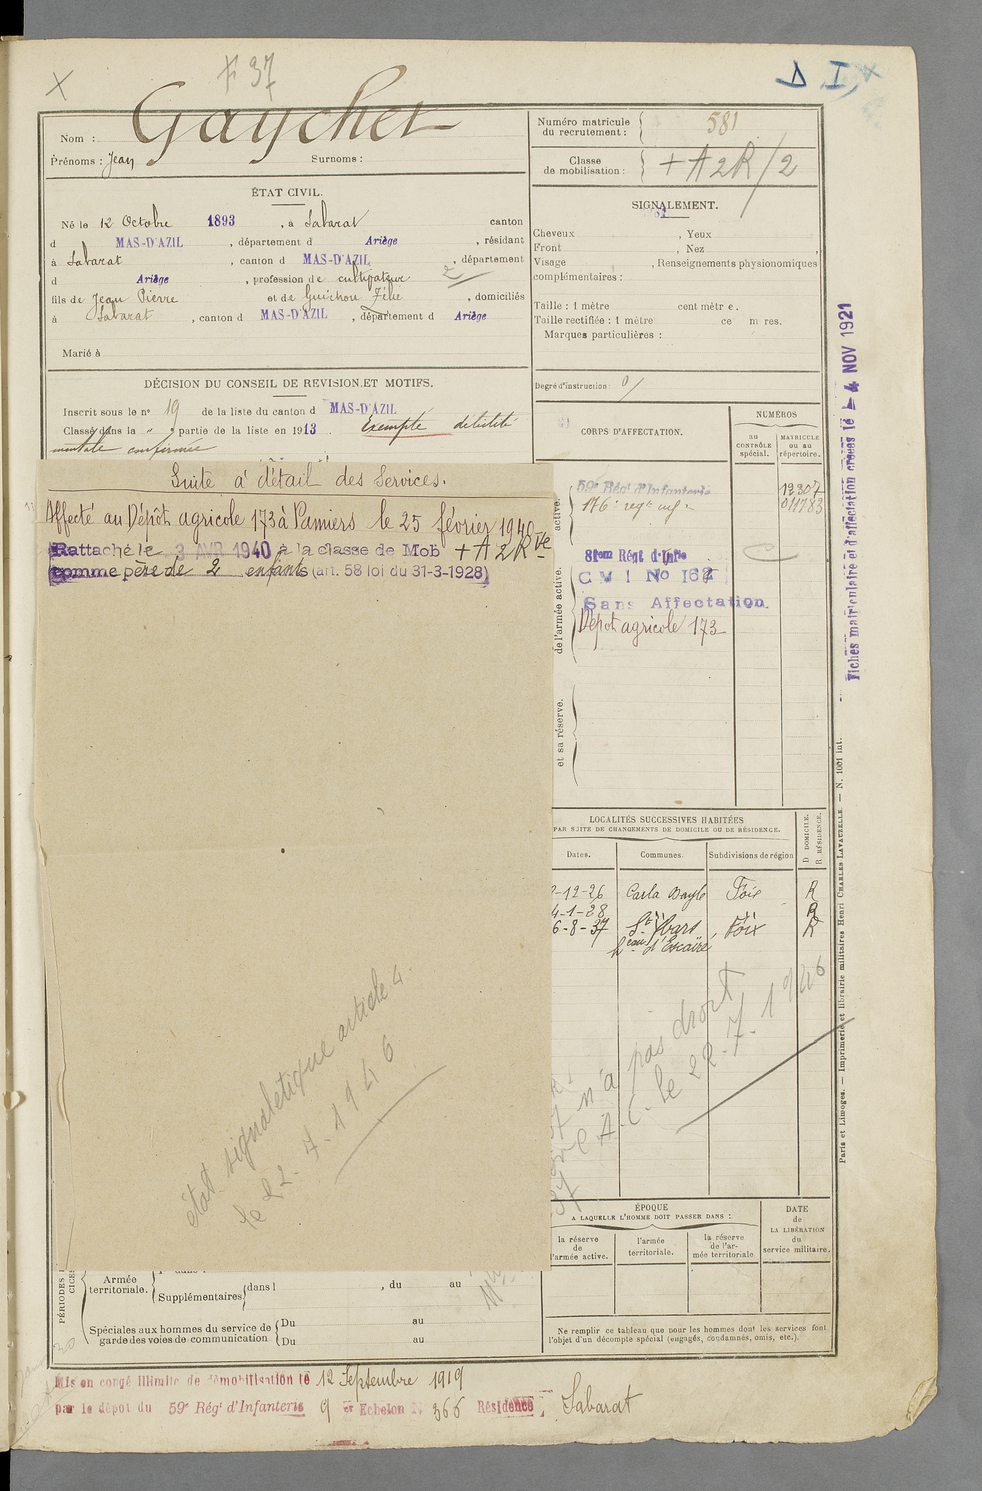 F 37
D I
Nom : Gaychet
Prénoms : Jean Surnoms :
Numéro matricule du recrutement : 581
Classe de mobilisation : + A 2 R / 2
ÉTAT CIVIL.
Né le 12 Octobre 1893, à Sabarat canton
d MAS-D'AZIL, département d Ariège, résidant
à Sabarat, canton d MAS-D'AZIL, département
d Ariège, profession de cultivateur 2
fils de Jean Pierre et de Guichou, domiciliés
à Sabarat, canton d MAS-D'AZIL, département d Ariège
Marié à
SIGNALEMENT.
Cheveux , Yeux
Front , Nez ,
Visage , Renseignements physionomiques
complémentaires :
Taille : 1 mètre cent mètr e.
Taille rectifiée : 1 mètre ce m res.
Marques particulières :
Degré d'instruction : 0/
DÉCISION DU CONSEIL DE REVISION ET MOTIFS.
Inscrit sous le nº 19 de la liste du canton d MAS-D'AZIL
Classé dans la " " partie de la liste en 1913. Exempté débilité
mentale confirmée
CORPS D'AFFECTATION.
NUMÉROS
AU CONTRÔLE spécial.
MATRICULE OU AU répertoire.
59e Régt d'Infanterie 12307
176e regt inf 011783
81eme Régt d'Infie
C M I No 162
Sans Affectation.
Dépot agricole 173
active.
de l'armée active.
et sa réserve.
Suite à détail des Services.
Affecté au Dépôt agricole 173 à Pamiers le 25 février 1940
Rattaché le 3 AVR 1940 à la classe de Mob + A 2 R ve
comme père de 2 enfants (art. 58 loi du 31-3-1928)
état signalétique article 4
le 22-7-1946
LOCALITÉS SUCCESSIVES HABITÉES
PAR SUITE DE CHANGEMENTS DE DOMICILE OU DE RÉSIDENCE.
Dates. Communes. Subdivisions de région
D DOMICILE.
R RÉSIDENCE.
-12-26 Carla Bayle Foix R
4-1-28 " " R
6-8-37 St Ybars, Foix R
heau d'Escaïre
n'a pas droit
A.C. le 22-7-1946
ÉPOQUE
A LAQUELLE L'HOMME DOIT PASSER DANS :
la réserve de l'armée active.
l'armée territoriale.
la réserve de l'armée territoriale
DATE de LA LIBÉRATION du service militaire.
Ne remplir ce tableau que pour les hommes dont les services font
l'objet d'un décompte spécial (engagés, condamnés, omis, etc.).
PÉRIODES
Armée territoriale.
Supplémentaires dans l , du au
Spéciales aux hommes du service de garde des voies de communication
Du au
Du au
Mis en congé illimité de démobilisation le 12 Septembre 1919
par le dépôt du 59e Régt d'Infanterie 9 er Echelon N 366 Résidence Sabarat
Fiches matriculaire et d'affectation créées le 4 NOV 1921
Paris et Limoges. — Imprimerie et librairie militaires Henri CHARLES-LAVAUZELLE. — N. 1001 int.